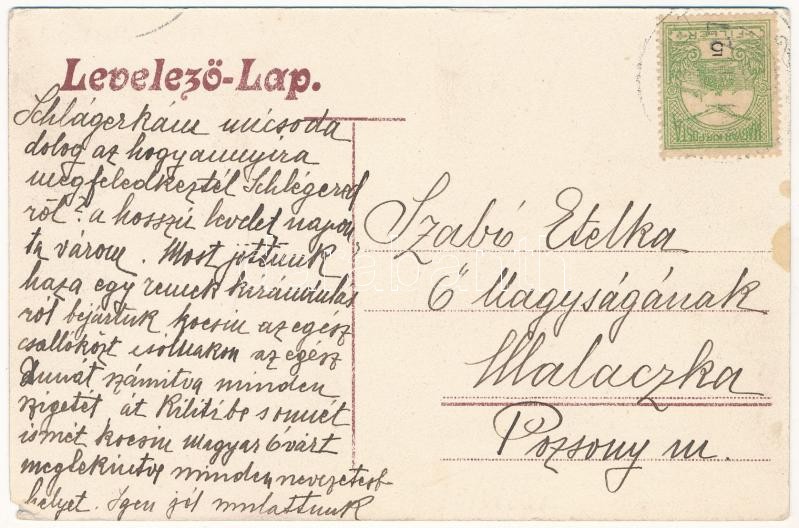 Levelező-Lap.
Schlágerkám micsoda
dolog az hogy annyira
megfeledkeztél Schlégered
ről? a hosszú levelet napon
ta várom. Most jöttünk
haza egy remek kirándulás
ról bejártuk kocsin az egész
csallóközt csólnakon az egész
Dunát számitva minden
szigetét át Kilitibe s onnét
ismét kocsin Magyar Óvárt
megtekintve minden nevezetesb
helyet. Igen jól mulattunk
Szabó Etelka
Ő Nagyságának
Malaczka
Pozsony m.
MAGYAR KIR. POSTA
5
FILLÉR